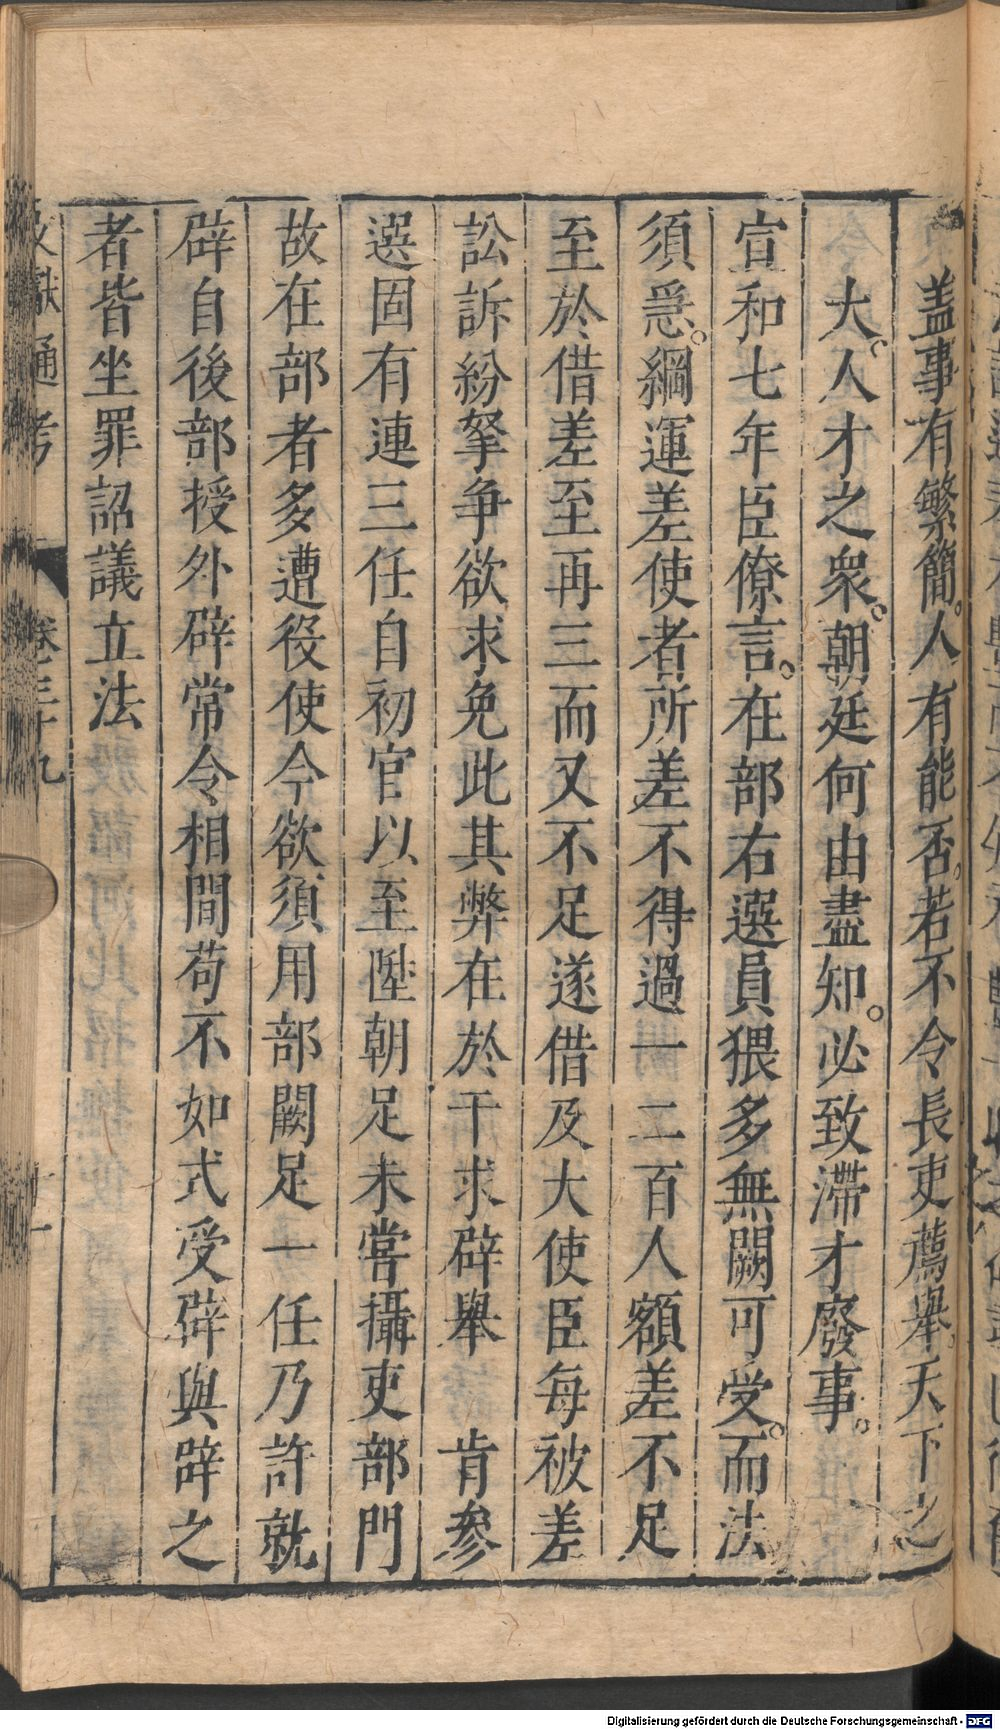 蓋事有繁簡。人有能否。若不令長吏薦舉。天下之
大。人才之衆。朝廷何由盡知。必致滯才廢事。
宣和七年臣僚言。在部右選員猥多無闕可受。而法
須爲。綱運差使者所差不得過一二百人額差不足
至於借差至再三而又不足遂借及大使臣每被差
訟訴紛拏爭欲求免此其弊在於干求辟舉 肯參
選固有連三任自初官以至陞朝足未嘗攝吏部門
故在部者多遭役使今欲須用部闕足一任乃許就
辟自後部授外辟常令相間苟不如式受辟與辟之
者皆坐罪詔議立法
文獻通考 卷三十九
Digitalisierung gefördert durch die Deutsche Forschungsgemeinschaft - DFG